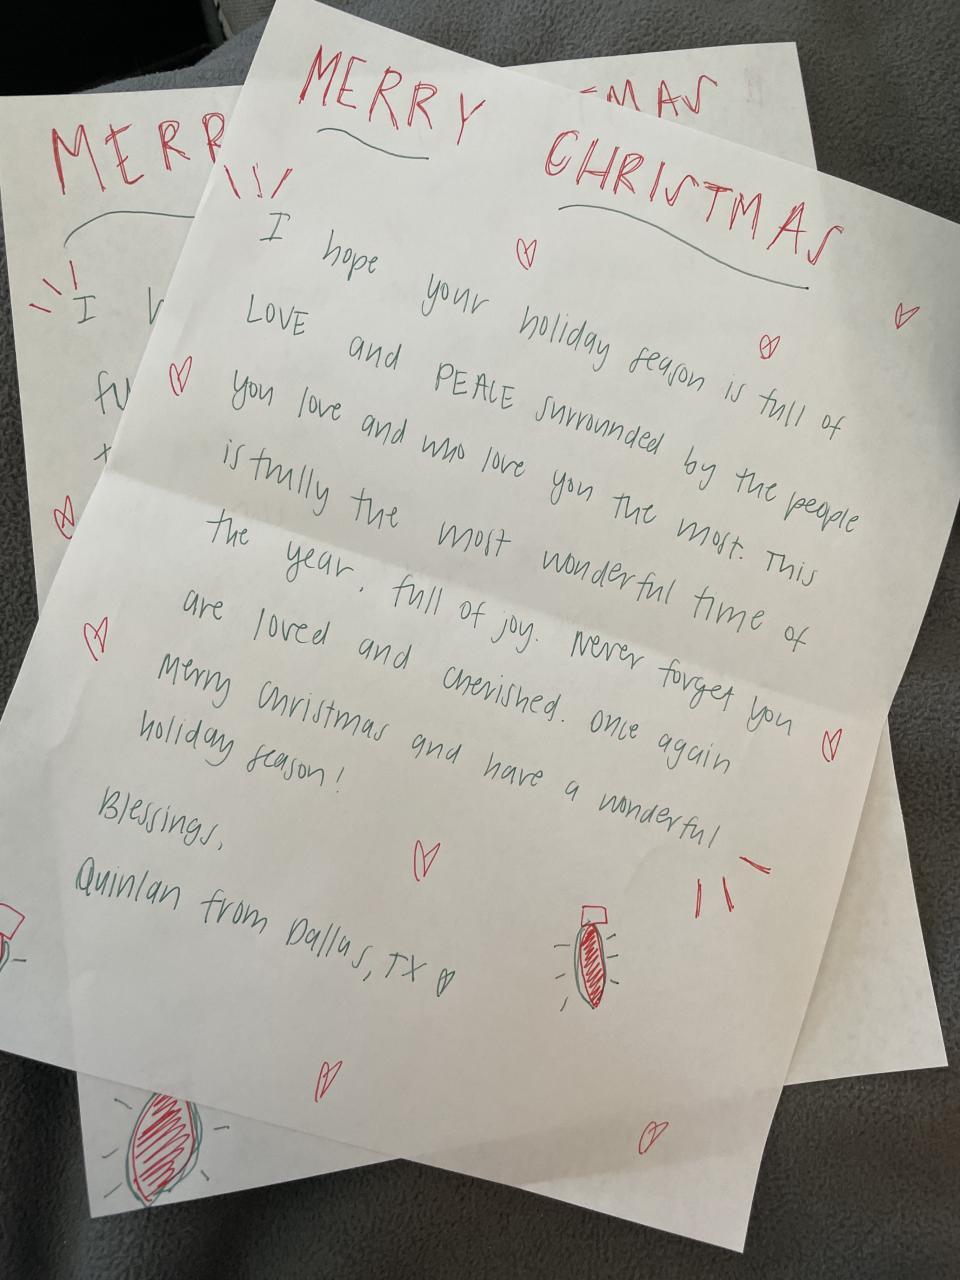 MERRY CHRISTMAS
I hope your holiday season is full of
LOVE and PEACE surrounded by the people
you love and who love you the most. This
is trully the most wonderful time of
the year, full of joy. Never forget you
are loved and cherished. Once again
Merry Christmas and have a wonderful
holiday season!
Blessings,
Quinlan from Dallas, TX
MERR
MAS
I h
fu